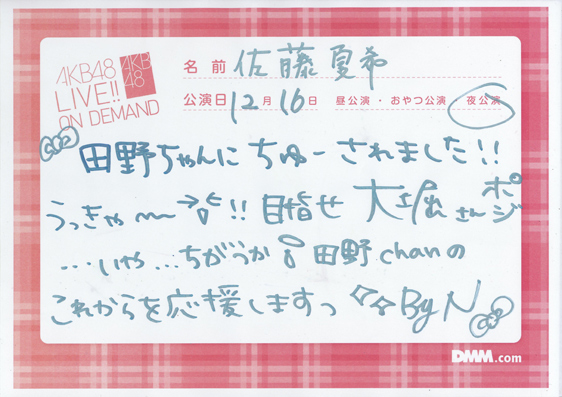 AKB48
LIVE!!
ON DEMAND
AKB
48
名前 佐藤夏希
公演日 12月16日 昼公演・おやつ公演 夜公演
田野ちゃんにちゅーされました!!
うっきゃ〜〜!! 目指せ大堀さんポジ
…いや…ちがうか 田野chanの
これからを応援しますっ By N
DMM.com